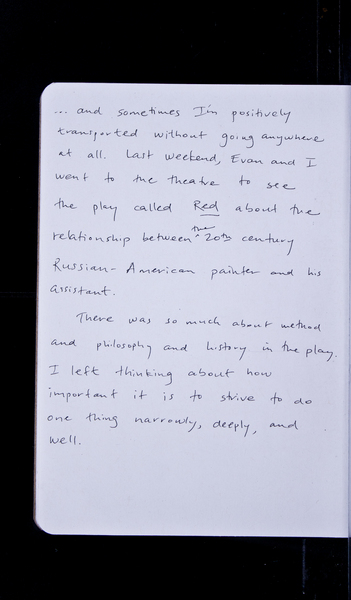 ... and sometimes I'm positively
transported without going anywhere
at all. Last weekend, Evan and I
went to the theatre to see
the play called Red about the
relationship between ^the 20th century
Russian-American painter and his
assistant.
There was so much about method
and philosophy and history in the play.
I left thinking about how
important it is to strive to do
one thing narrowly, deeply, and
well.